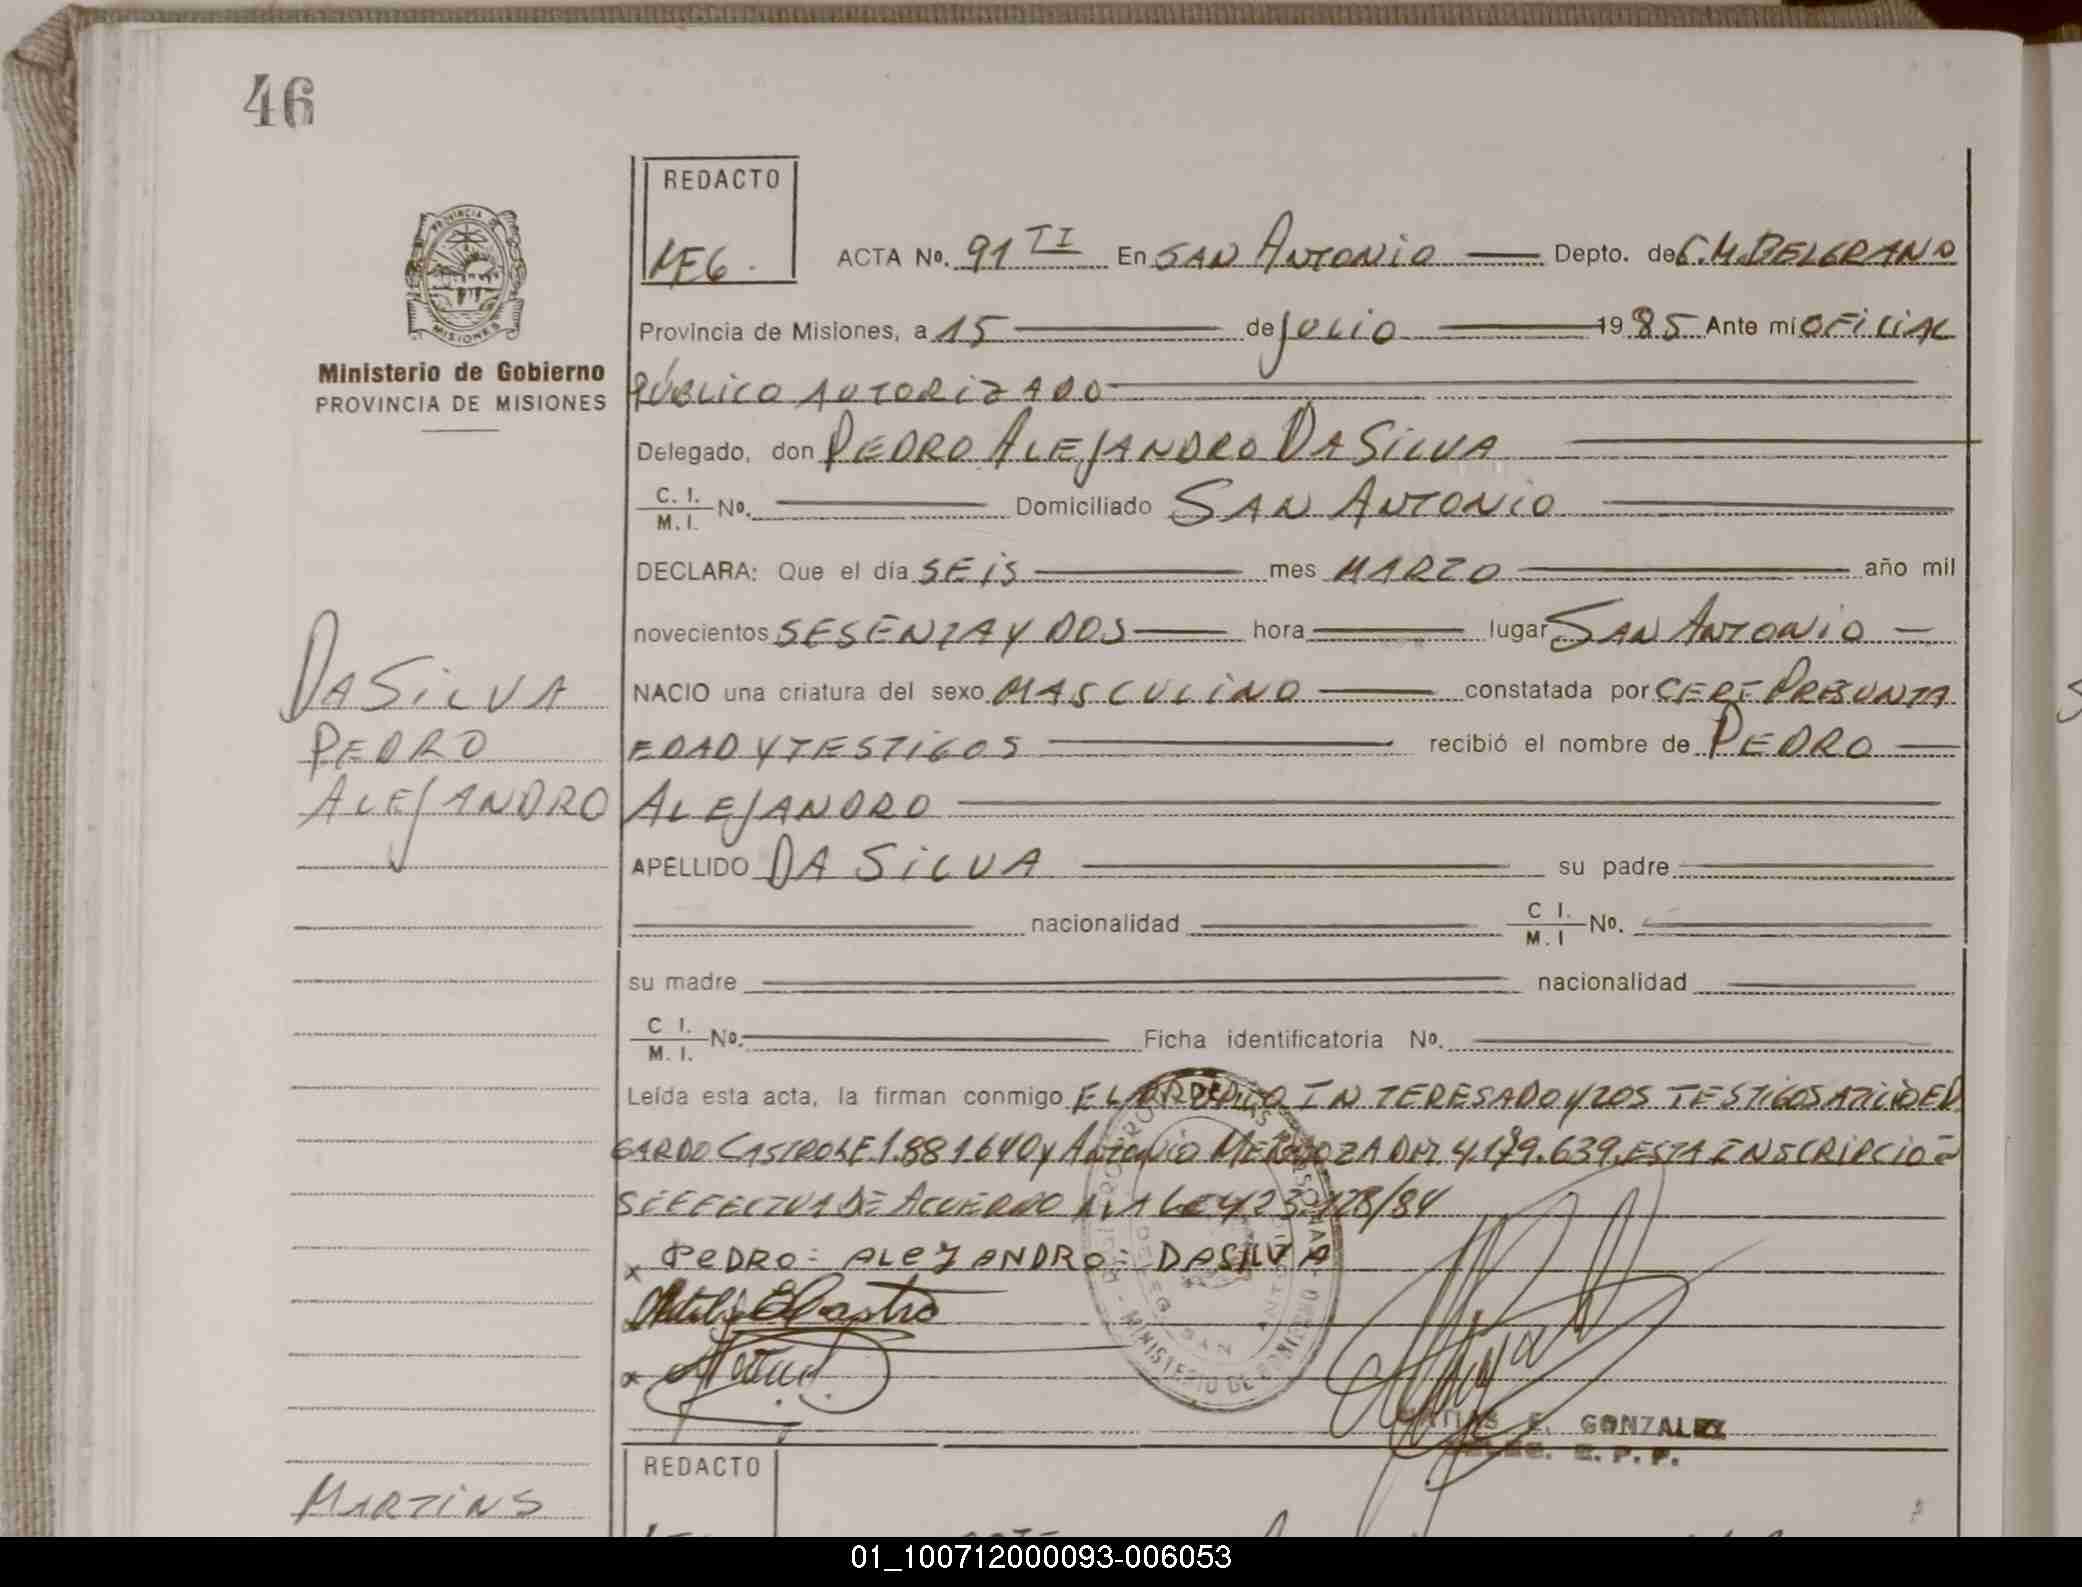 46
REDACTO
MEG.
ACTA No. 91 TI En SAN ANTONIO Depto. de G.M.BELGRANO
Provincia de Misiones, a 15 de JULIO 1985 Ante mí OFICIAL
PÚBLICO AUTORIZADO
Ministerio de Gobierno
PROVINCIA DE MISIONES
Delegado, don PEDRO ALEJANDRO DA SILVA
C. I. M. I. No. Domiciliado SAN ANTONIO
DECLARA: Que el día SEIS mes MARZO año mil
novecientos SESENTA Y DOS hora lugar SAN ANTONIO
DA SILVA
PEDRO
ALEJANDRO
NACIO una criatura del sexo MASCULINO constatada por CERT PRESUNTA
EDAD Y TESTIGOS recibió el nombre de PEDRO
ALEJANDRO
APELLIDO DA SILVA su padre
nacionalidad C I. M. I No.
su madre nacionalidad
C I. M. I. No. Ficha identificatoria No.
Leída esta acta, la firman conmigo EL PROPIO INTERESADO Y LOS TESTIGOS ATILIO ED
GARDO CASTRO LE 1.881640 y ANTONIO MENDOZA DNI 4.179.639. ESTA INSCRIPCIO=
SE EFECTUA DE ACUERDO A LA LEY 23.128/84
x PEDRO: ALEJANDRO: DASILVA
x
MATIAS E. GONZALEZ
DELEG. R. P. P.
REDACTO
MARTINS
01_100712000093-006053